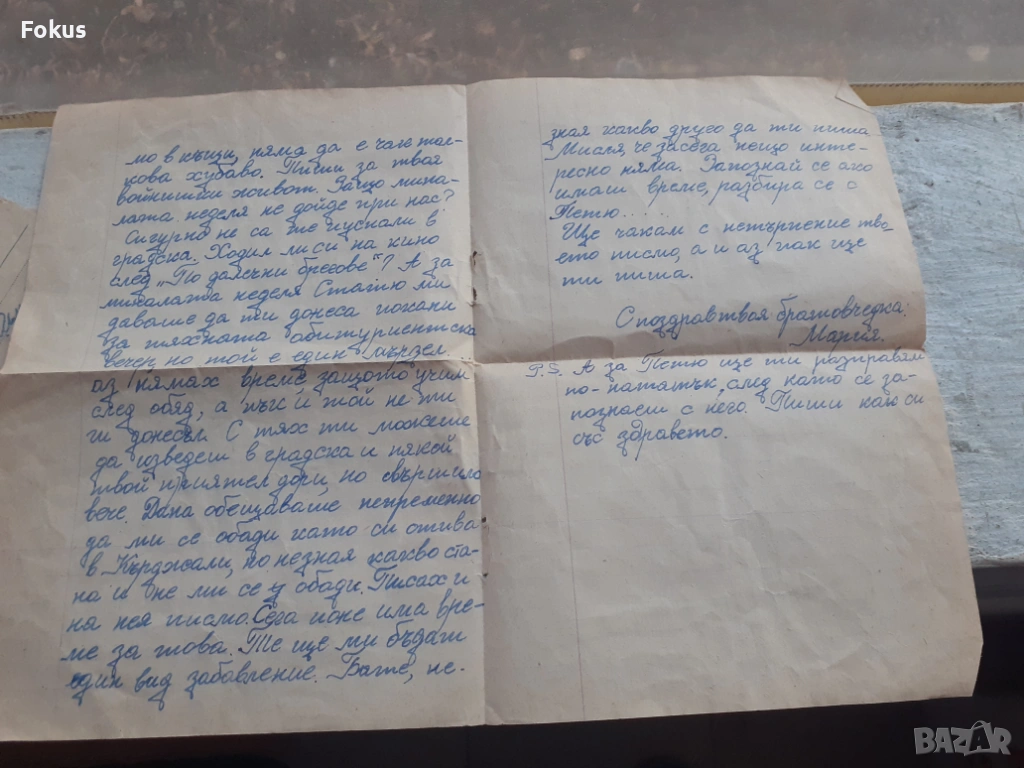 Fokus
мо в къщи, няма да е чак тол-
кова хубаво. Пиши за твоя
войнишки живот. Защо мина-
лата неделя не дойде при нас?
Сигурно не са те пуснали в
градска. Ходил ли си на кино
след „По далечни брегове"? А за
миналата неделя Статю ми
даваше да ти донеса покани
за тяхната абитуриентска
вечер, но той е един
аз нямах време защото учим
след обяд, а пък и той не ти
ги донесъл. С тях ти можеше
да изведеш в градска и някой
твой приятел дори, но свършило
вече. Дана обещаваше непременно
да ми се обади като си отива
в Кърджали, но незная какво ста-
на и не ми се обади. Писах и
на нея писмо. Сега поне има вре-
ме за това. Те ще ми бъдат
един вид забавление. Бате, не-
зная какво друго да ти пиша.
Мисля, че засега нещо инте-
ресно няма. Запознай се ако
имаш време, разбира се с
Петю.....
Ще чакам с нетърпение тво-
ето писмо, а и аз пак ще
ти пиша.
С поздрав твоя братовчедка:
Мария.
P.S. А за Петю ще ти разправям
по-нататък, след като се за-
познаеш с него. Пиши как си
със здравето.
BAZAR